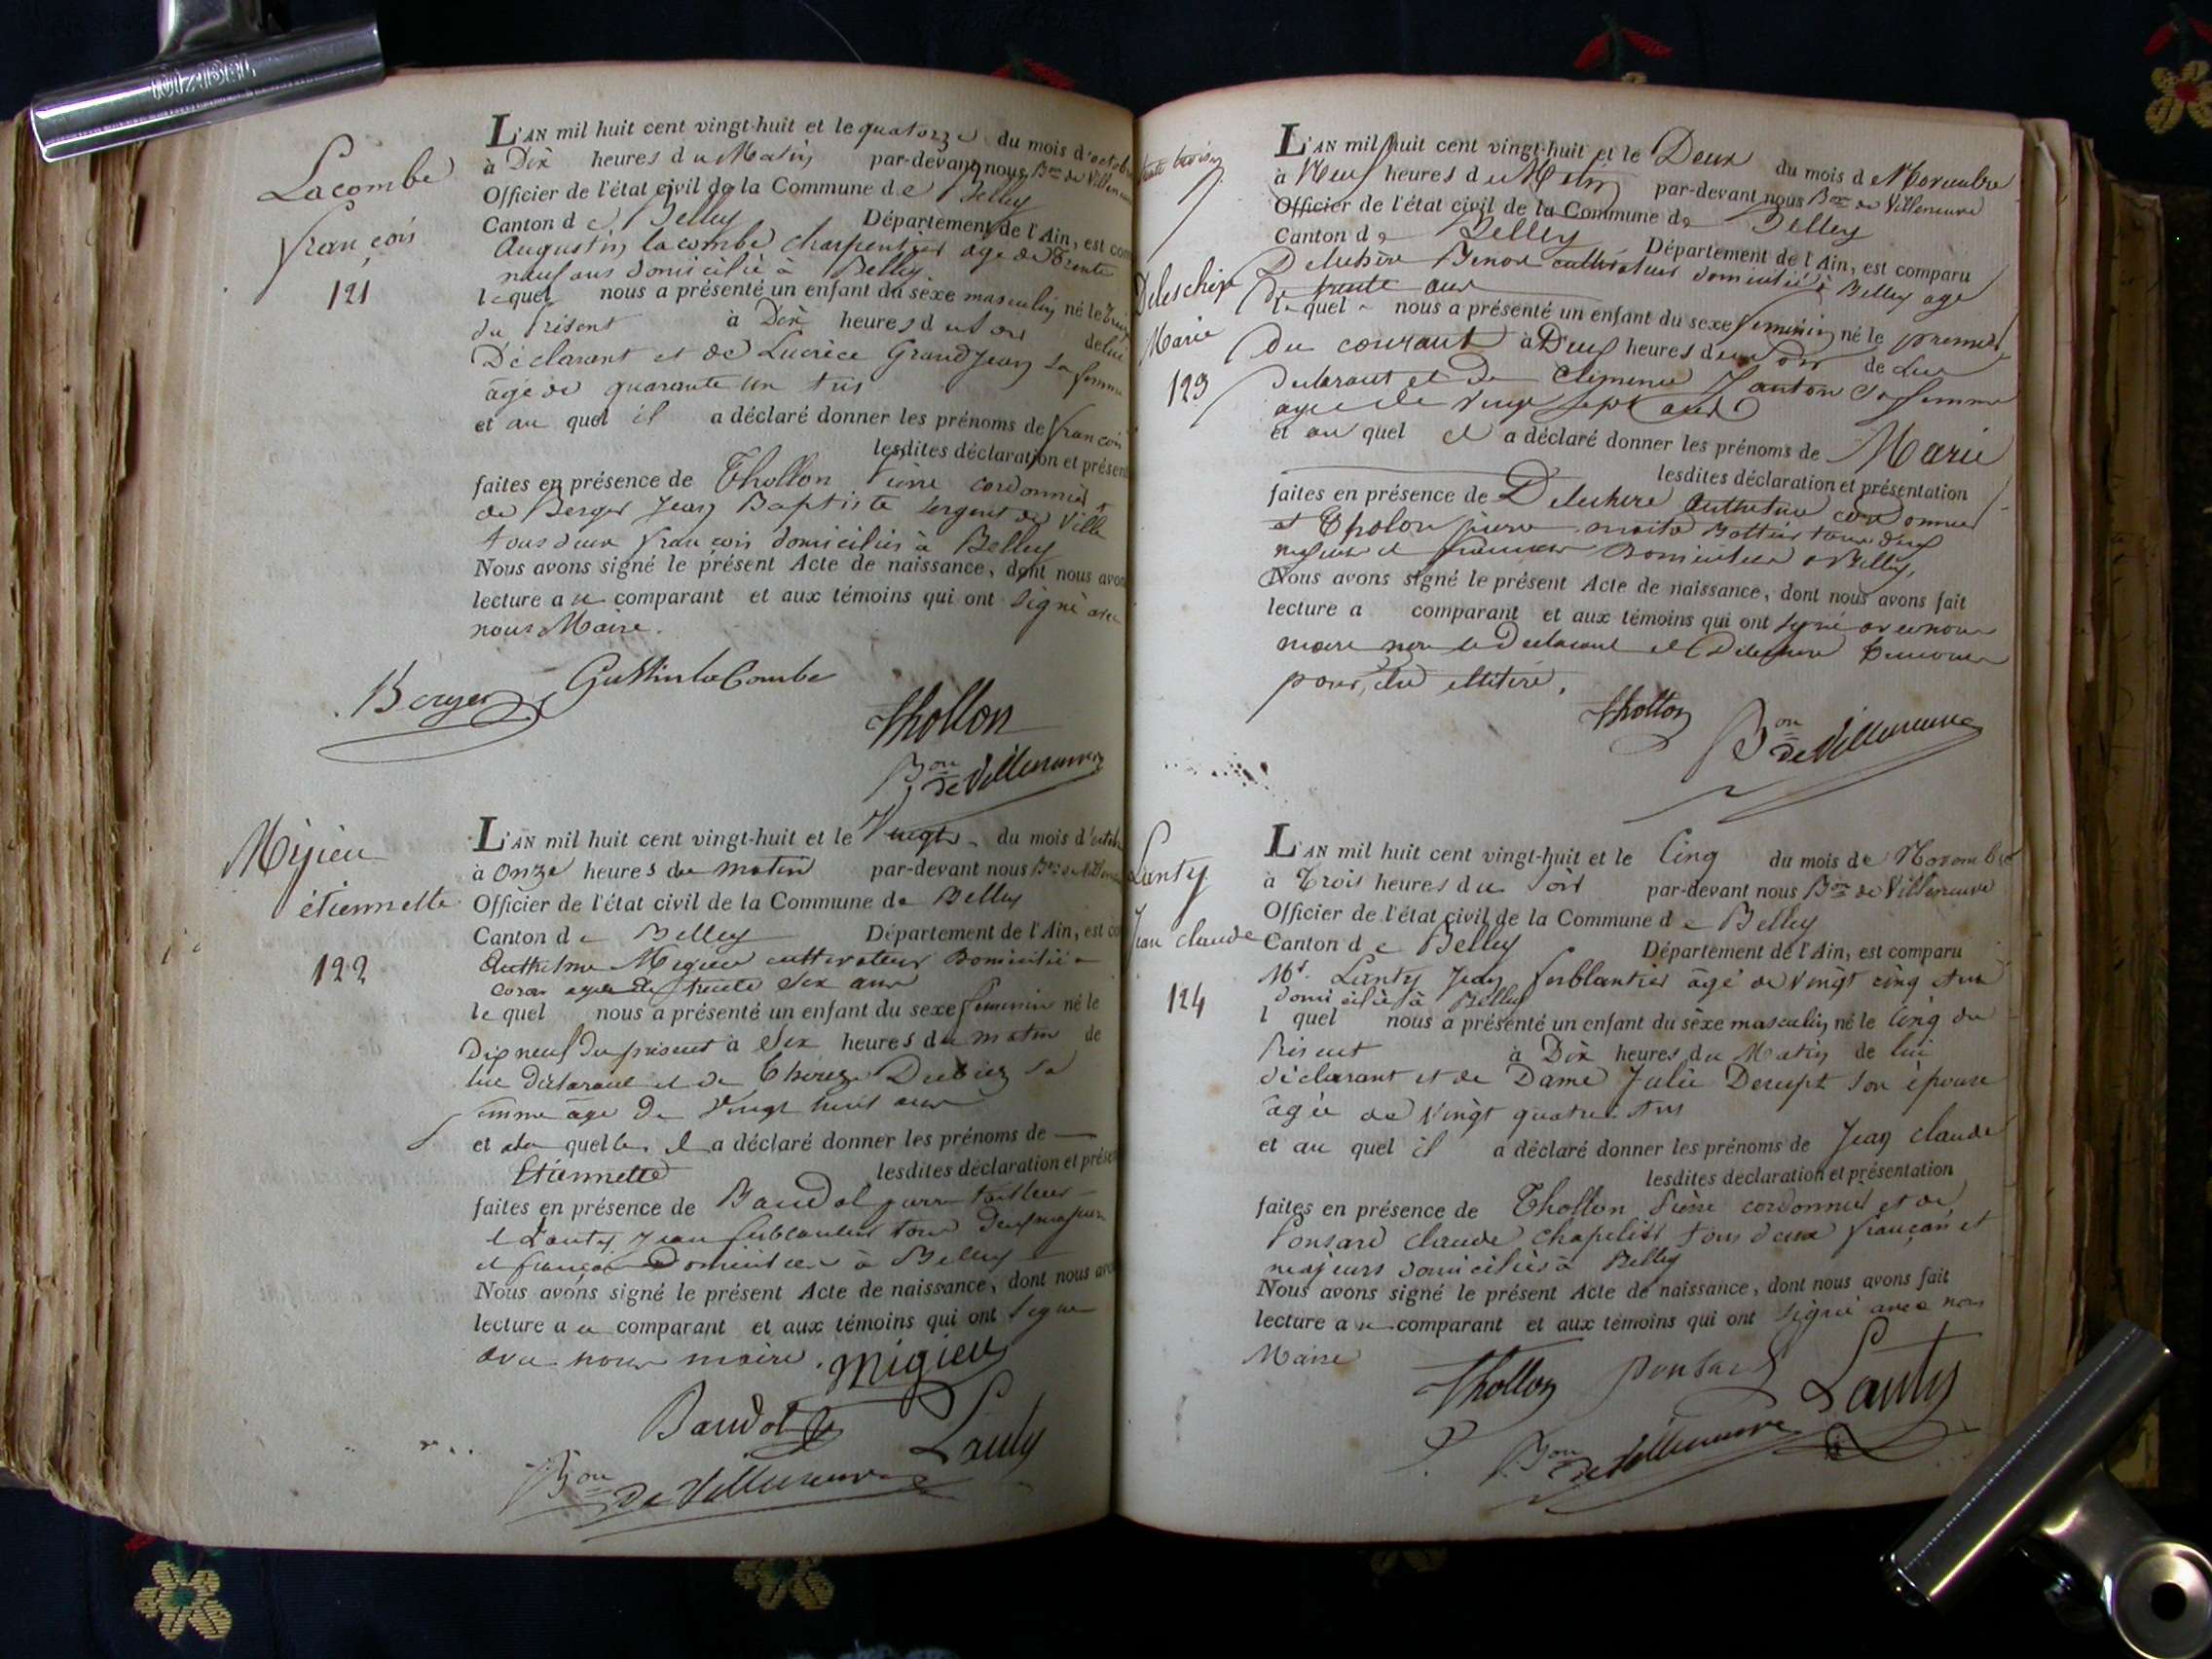 Lacombe
françois
121
L'AN mil huit cent vingt-huit et le quatorze du mois d'octobre
à Dix heures du Matin par-devant nous Bon de Villeneuve
Officier de l'état civil de la Commune de Belley
Canton de Belley Département de l'Ain, est com
Augustin lacombe charpentier age de Trente
neuf ans domicilié à Belley.
lequel nous a présenté un enfant du sexe masculin né le
du Présent à Dix heures du Soir de lui
Déclarant et de Lucrèce GrandJean Sa femme
âgée de quarante un ans
et au quel il a déclaré donner les prénoms de françois
lesdites déclaration et présen
faites en présence de Thollon Pierre cordonnier
de Berger Jean Baptiste Sergent de Ville
tous deux françois domiciliés à Belley
Nous avons signé le présent Acte de naissance, dont nous avons
lecture au comparant et aux témoins qui ont Signé avec
nous Maire.
Berger Gustin laCombe
Thollon
Bon de Villeneuve
Migieu
étiennette
122
L'AN mil huit cent vingt-huit et le Vingt du mois d'octobre
à Onze heures du matin par-devant nous Bon de Villeneuve
Officier de l'état civil de la Commune de Belley
Canton de Belley Département de l'Ain, est co
Anthelme Migieu cultivateur Domicilié a
age de trente Six ans
lequel nous a présenté un enfant du sexe feminin né le
Dix neuf du présent à Six heures du matin de
lui Déclarant et de Therese Dubiez Sa
femme âge de Vingt huit ans
et a la quelle il a déclaré donner les prénoms de
Etiennette lesdites déclaration et présen
faites en présence de Baudot pierre tailleur
et Lanty Jean ferblantier tous Deux majeurs
et français Domiciliés à Belley
Nous avons signé le présent Acte de naissance, dont nous avo
lecture au comparant et aux témoins qui ont Signé
avec nous maire. Migieu
Baudot Lanty
Bon de Villeneuve
Deleschere
Marie
123
L'AN mil huit cent vingt-huit et le Deux du mois de Novembre
à Neuf heures du Matin par-devant nous Bon de Villeneuve
Officier de l'état civil de la Commune de Belley
Canton de Belley Département de l'Ain, est comparu
Benoit cultivateur domicilié à Belley age
de trente ans
lequel nous a présenté un enfant du sexe feminin né le premier
du courant à Deux heures du Soir de Lui
declarant et de Climence Janton Sa femme
agee de Vingt Sept ans
et au quel il a déclaré donner les prénoms de Marie
lesdites déclaration et présentation
faites en présence de Anthelme cordonnier
et Tholon pierre maitre Bottier tous deux
majeurs et francais Domiciliés a Belley,
Nous avons signé le présent Acte de naissance, dont nous avons fait
lecture a comparant et aux témoins qui ont signé avec nous
maire non le Declarant et
pour illitéré.
Thollon
Bon de Villeneuve
Lanty
Jean claude
124
L'AN mil huit cent vingt-huit et le Cinq du mois de Novembre
à Trois heures du Soir par-devant nous Bon de Villeneuve
Officier de l'état civil de la Commune de Belley
Canton de Belley Département de l'Ain, est comparu
Mr. Lanty Jean ferblantier âgé de Vingt cinq ans
domicilié à Belley
l quel nous a présenté un enfant du sèxe masculin né le Cinq du
Présent à Dix heures du Matin de lui
déclarant et de Dame Julie Derupt Son épouse
âgée de Vingt quatre Ans
et au quel il a déclaré donner les prénoms de Jean claude
lesdites déclaration et présentation
faites en présence de Thollon Pierre cordonnier et de
Ponsard claude chapelier tous deux français et
majeurs domiciliés à Belley
Nous avons signé le présent Acte de naissance, dont nous avons fait
lecture au comparant et aux témoins qui ont Signé avec nous
Maire
Thollon Ponsard Lanty
Bon de Villeneuve